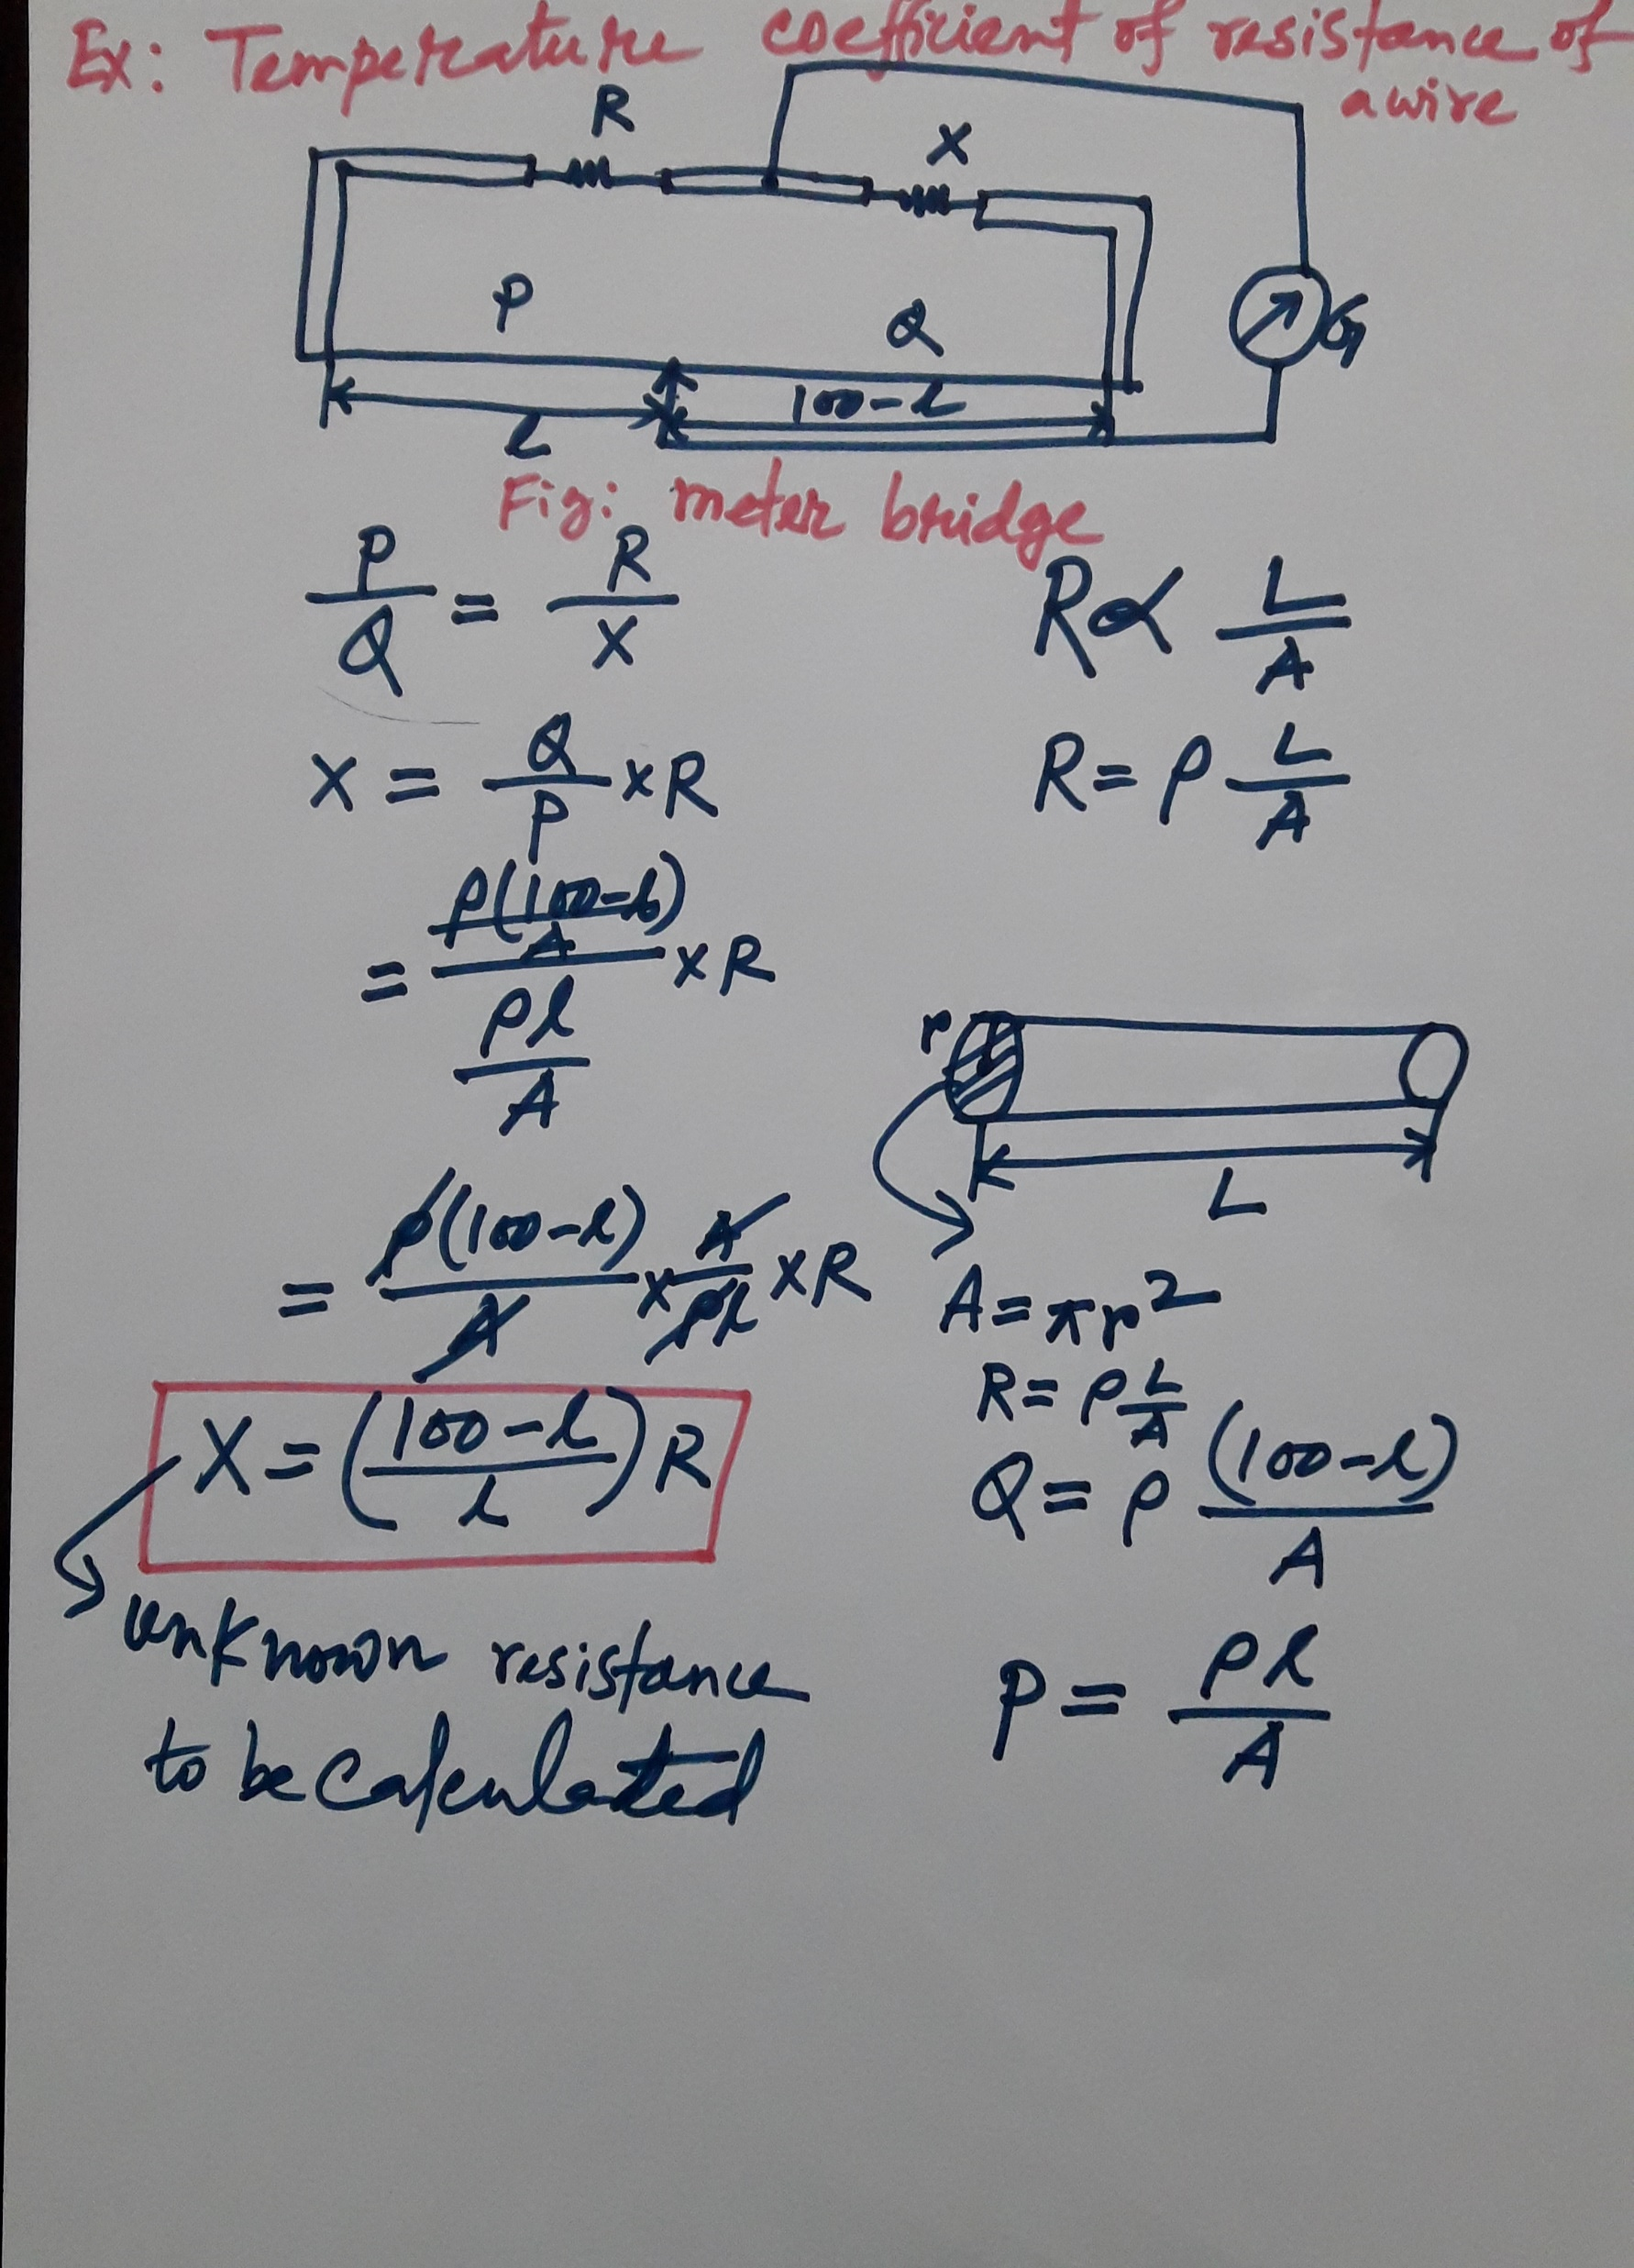 Ex: Temperature coefficient of resistance of
a wire
R
X
P
Q
G
l
100-l
Fig: meter bridge
P/Q = R/X
R ∝ L/A
X = Q/P × R
R = ρ L/A
= (ρ(100-l)/A)/(ρl/A) × R
r
L
= ρ(100-l)/A × A/ρl × R
A = πr²
R = ρ L/A
X = ((100-l)/l) R
Q = ρ (100-l)/A
unknown resistance
to be calculated
P = ρl/A